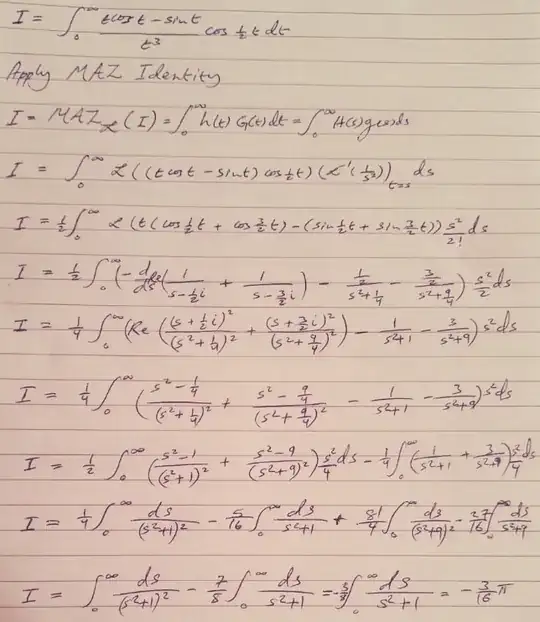 I = ∫₀^∞ (t cos t − sin t)/t³ cos ½t dt
Apply MAZ Identity
I = MAZ_𝓛(I) = ∫₀^∞ h(t) G(t) dt = ∫₀^∞ H(s) g(s) ds
I = ∫₀^∞ 𝓛((t cos t − sin t) cos ½t) (𝓛⁻¹(1/s³))_{t=s} ds
I = ½ ∫₀^∞ 𝓛(t(cos ½t + cos 3/2 t) − (sin ½t + sin 3/2 t)) s²/2! ds
I = ½ ∫₀^∞ (−d/ds Re(1/(s − ½i) + 1/(s − 3/2 i)) − ½/(s² + ¼) − (3/2)/(s² + 9/4)) s²/2 ds
I = ¼ ∫₀^∞ (Re((s + ½i)²/(s² + ¼)² + (s + 3/2 i)²/(s² + 9/4)²) − 1/(s²+1) − 3/(s²+9)) s² ds
I = ¼ ∫₀^∞ ((s² − ¼)/(s² + ¼)² + (s² − 9/4)/(s² + 9/4)² − 1/(s²+1) − 3/(s²+9)) s² ds
I = ½ ∫₀^∞ ((s²−1)/(s²+1)² + (s²−9)/(s²+9)²) s²/4 ds − ¼ ∫₀^∞ (1/(s²+1) + 3/(s²+9)) s²/4 ds
I = ¼ ∫₀^∞ ds/(s²+1)² − 5/16 ∫₀^∞ ds/(s²+1) + 81/4 ∫₀^∞ ds/(s²+9)² − 27/16 ∫₀^∞ ds/(s²+9)
I = ∫₀^∞ ds/(s²+1)² − 7/8 ∫₀^∞ ds/(s²+1) = −3/8 ∫₀^∞ ds/(s²+1) = −3/16 π